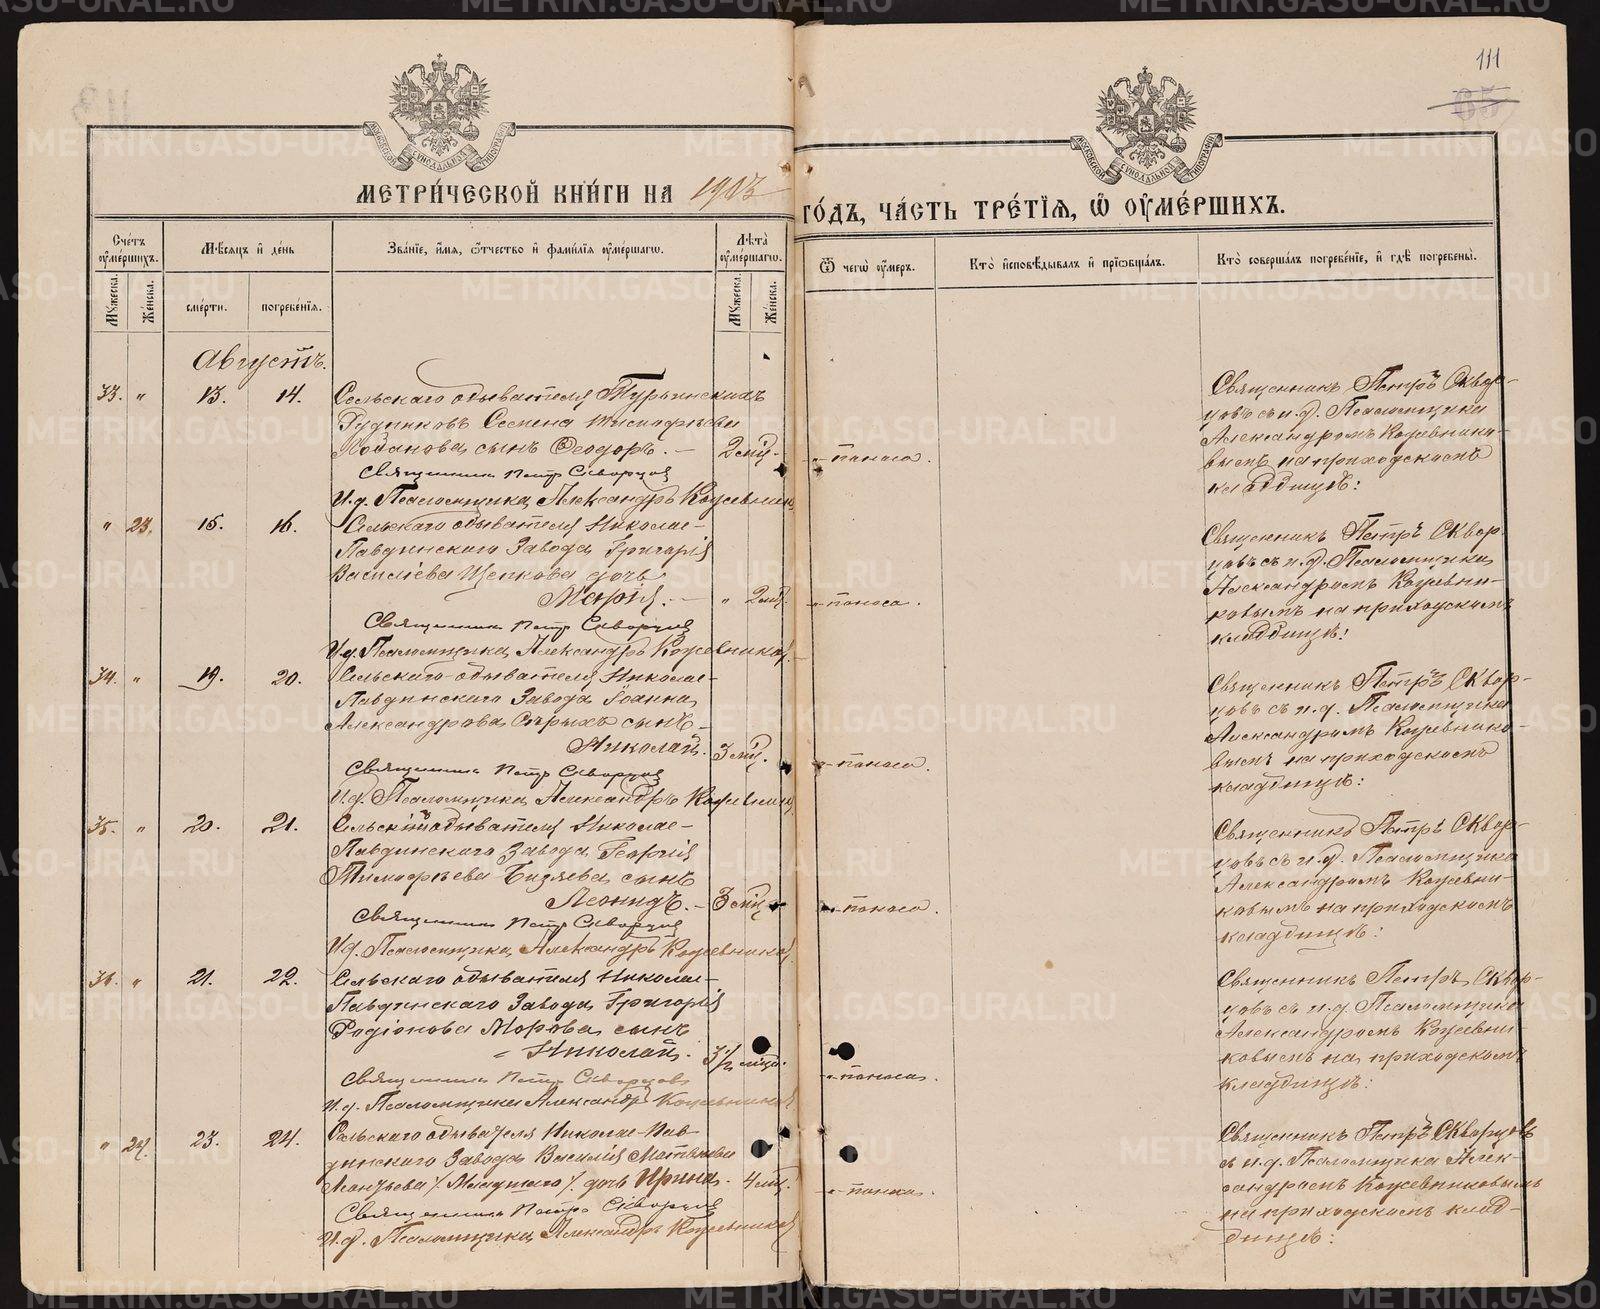 111
65
МОСКОВСКОЙ СѴНОДАЛЬНОЙ ТИПОГРАФІИ
МОСКОВСКОЙ СѴНОДАЛЬНОЙ ТИПОГРАФІИ
МЕТРИ́ЧЕСКОЙ КНИ́ГИ НА 1903 ГО́ДЪ, ЧА́СТЬ ТРЕ́ТІѦ, Ѡ҆ ОУ҆МЕ́РШИХЪ.
Сче́тъ оу҆ме́ршихъ.
Мꙋжеска.
Же́нска.
Мѣ́сѧцъ и҆ де́нь
сме́рти.
погребе́нїѧ.
Зва́нїе, и҆́мѧ, ѻ҆́тчество и҆ фами́лїѧ оу҆ме́ршагѡ.
Лѣ́та оу҆ме́ршагѡ.
Мꙋжеска.
Же́нска.
Ѿ чегѡ̀ оу҆́меръ.
Кто̀ и҆сповѣ́дывалъ и҆ прїѡбща́лъ.
Кто̀ соверша́лъ погребе́нїе, и҆ гдѣ̀ погребены̀.
Августъ.
33. " 13. 14. Сельскаго обывателя Турьинскихъ
Рудниковъ Семена Тимофѣева
сынъ Ѳеодоръ. — 2 мѣц. " поноса.
Священникъ Петр Скворцов
И.д. Псаломщика Александръ Кожевников
Священникъ Петръ Сквор-
цовъ съ и.д. Псаломщика
Александромъ Кожевнико-
вымъ на приходскомъ
кладбищѣ:
" 23. 15. 16. Сельскаго обывателя Николае-
Павдинскаго Завода Григорія
Василіева Щепкова дочь
Марія. — " 2 мц. " поноса.
Священникъ Петр Скворцов
И.д. Псаломщика Александръ Кожевников.
Священникъ Петръ Сквор-
цовъ съ и.д. Псаломщика
Александромъ Кожевни-
ковымъ на приходскомъ
кладбищѣ:
34. " 19. 20. Сельскаго обывателя Николае-
Павдинскаго Завода Іоанна
Александрова Сѣрыхъ сынъ
Николай. 3 мц. " поноса.
Священникъ Петр Скворцов
И.д. Псаломщика Александръ Кожевников
Священникъ Петръ Сквор-
цовъ съ и.д. Псаломщика
Александромъ Кожевнико-
вымъ на приходскомъ
кладбищѣ:
35. " 20. 21. Сельскаго обывателя Николае-
Павдинскаго Завода Георгія
Тимофѣева Бизяева сынъ
Леонидъ. — 3 мц. " поноса.
Священникъ Петр Скворцов
И.д. Псаломщика Александръ Кожевников
Священникъ Петръ Сквор-
цовъ съ и.д. Псаломщика
Александромъ Кожевни-
ковымъ на приходскомъ
кладбищѣ:
36. " 21. 22. Сельскаго обывателя Николае-
Павдинскаго Завода Григорія
Родіонова Морова сынъ
Николай. 3 1/2 мѣц. " поноса.
Священникъ Петр Скворцовъ
И.д. Псаломщика Александръ Кожевников
Священникъ Петръ Сквор-
цовъ съ и.д. Псаломщика
Александромъ Кожевни-
ковымъ на приходскомъ
кладбищѣ:
" 24. 23. 24. Сельскаго обывателя Николае-Пав-
динскаго Завода Василія Матвѣева
/Младшаго/ дочь Ирина. 4 мц. " поноса.
Священникъ Петръ Скворцов
И.д. Псаломщика Александръ Кожевников
Священникъ Петръ Скворцовъ
съ и.д. Псаломщика Алек-
сандромъ Кожевниковымъ
на приходскомъ клад-
бищѣ:
METRIKI.GASO-URAL.RU